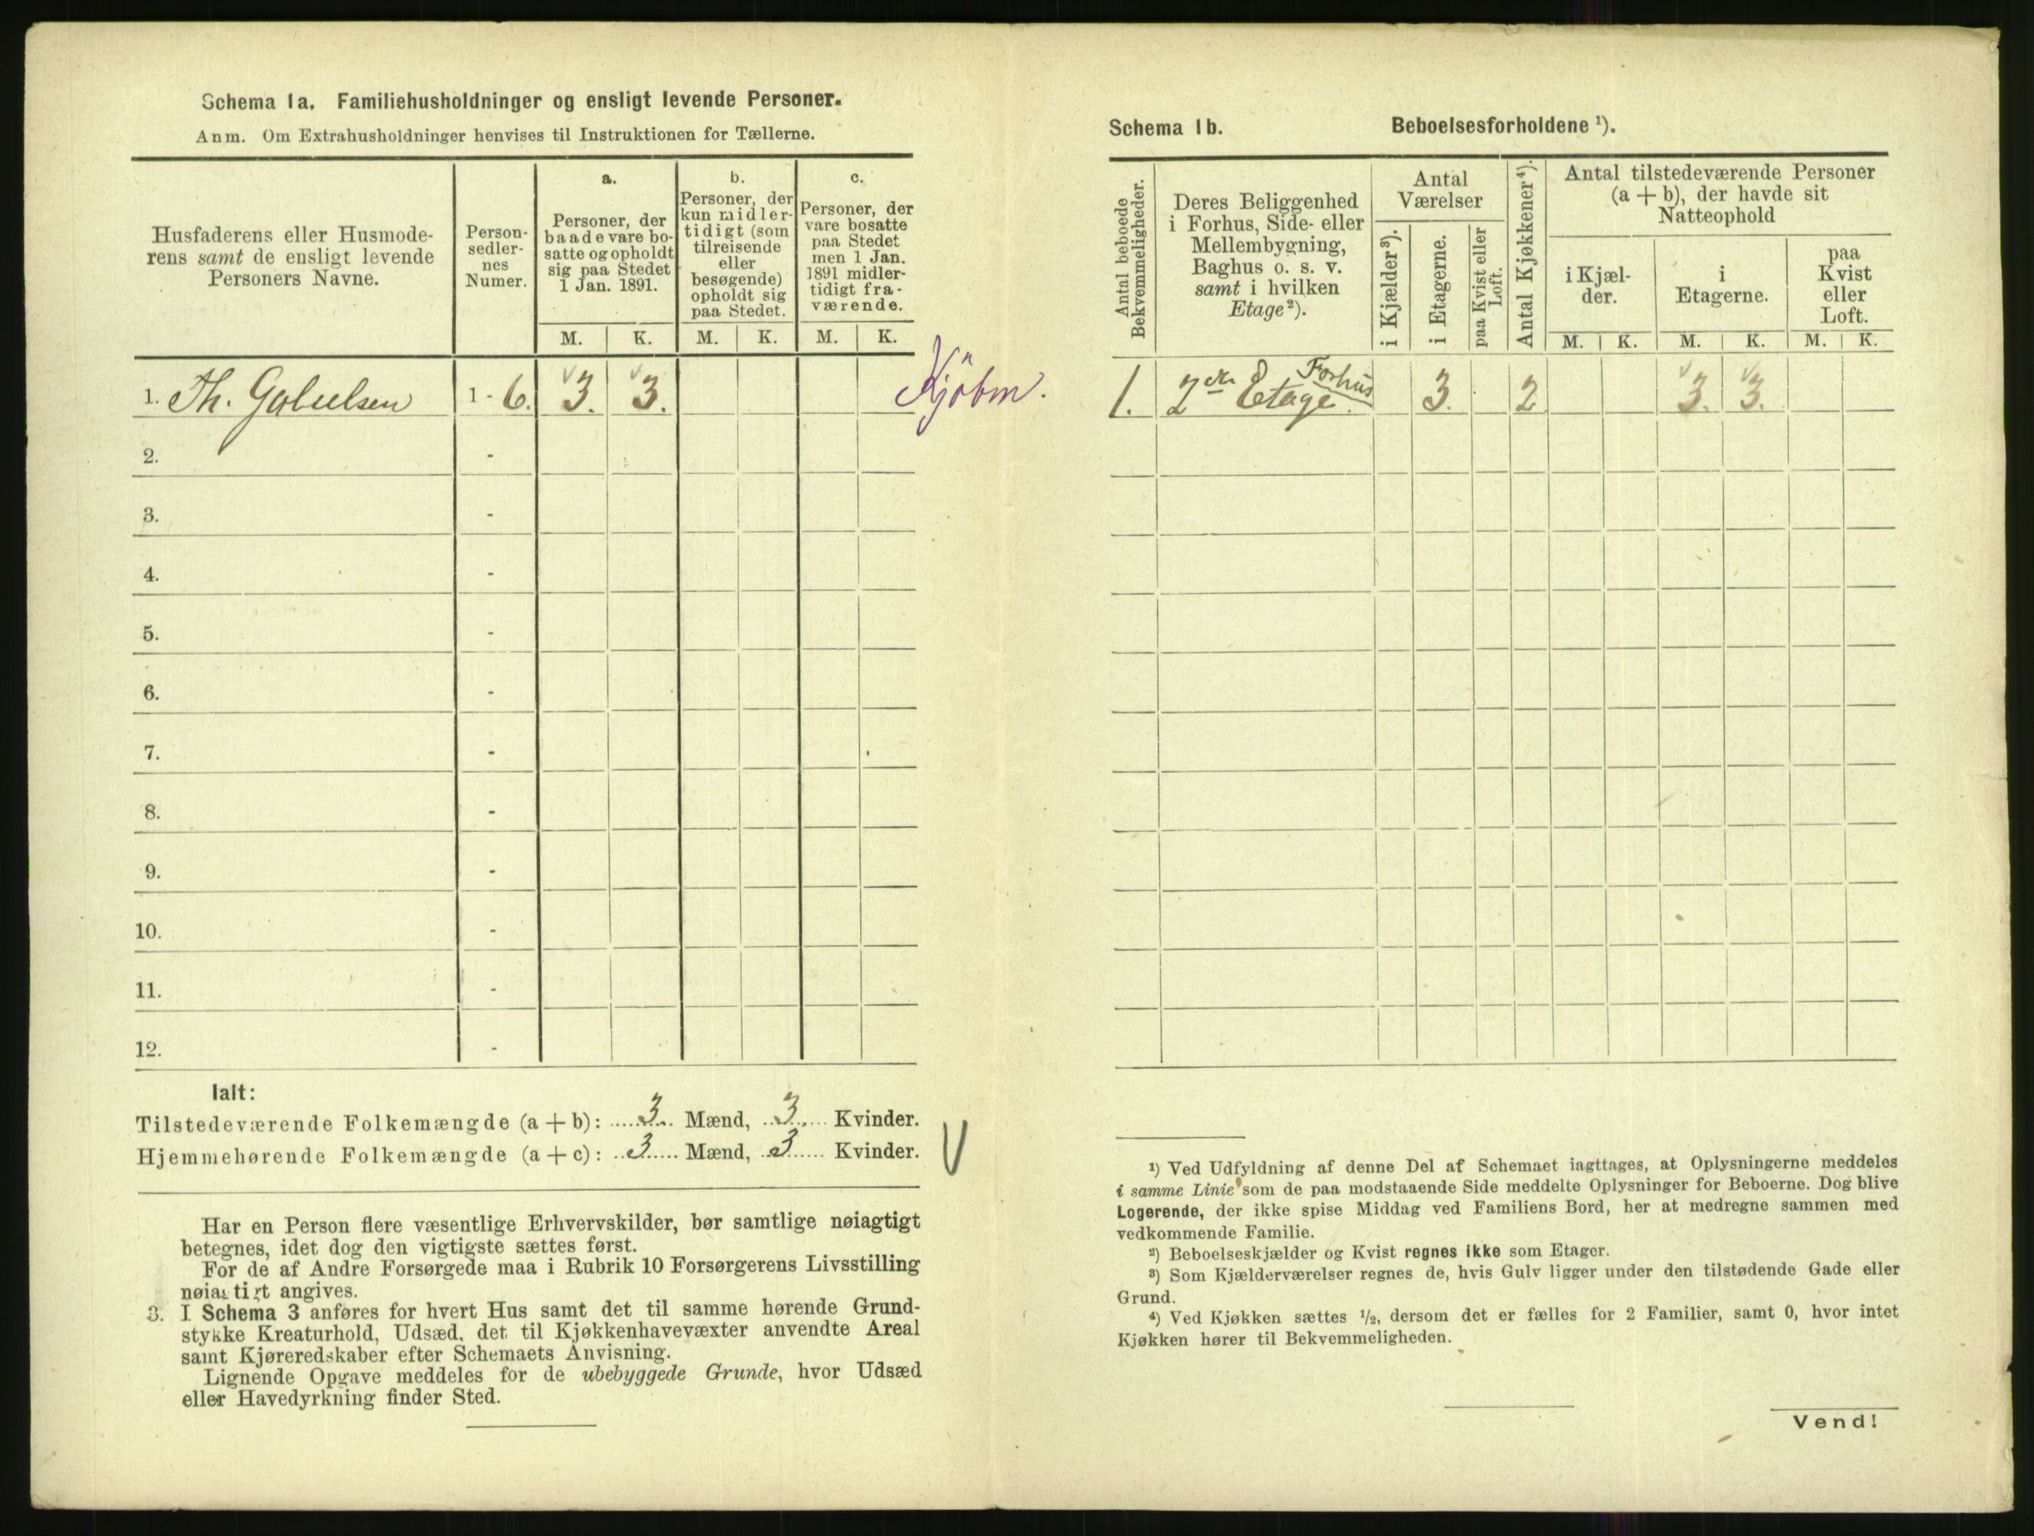 Schema 1a. Familiehusholdninger og ensligt levende Personer.
Anm. Om Extrahusholdninger henvises til Instruktionen for Tællerne.
Husfaderens eller Husmode-
rens samt de ensligt levende
Personers Navne.
Person-
sedler-
nes
Numer.
a.
Personer, der
baade vare bo-
satte og opholdt
sig paa Stedet
1 Jan. 1891.
b.
Personer, der
kun midler-
tidigt (som
tilreisende
eller
besøgende)
opholdt sig
paa Stedet.
c.
Personer, der
vare bosatte
paa Stedet
men 1 Jan.
1891 midler-
tidigt fra-
værende.
M. K. M. K. M. K.
1. Th. Gabrielsen 1 - 6. 3. 3. Kjøbm.
2. -
3. -
4. -
5. -
6. -
7. -
8. -
9. -
10. -
11. -
12. -
Ialt:
Tilstedeværende Folkemængde (a + b): 3 Mænd, 3 Kvinder.
Hjemmehørende Folkemængde (a + c): 3 Mænd, 3 Kvinder.
Har en Person flere væsentlige Erhvervskilder, bør samtlige nøiagtigt
betegnes, idet dog den vigtigste sættes først.
For de af Andre Forsørgede maa i Rubrik 10 Forsørgerens Livsstilling
nøiagtigt angives.
3. I Schema 3 anføres for hvert Hus samt det til samme hørende Grund-
stykke Kreaturhold, Udsæd, det til Kjøkkenhavevæxter anvendte Areal
samt Kjøreredskaber efter Schemaets Anvisning.
Lignende Opgave meddeles for de ubebyggede Grunde, hvor Udsæd
eller Havedyrkning finder Sted.
Schema 1b. Beboelsesforholdene ¹).
Antal beboede
Bekvemmeligheder.
Deres Beliggenhed
i Forhus, Side- eller
Mellembygning,
Baghus o. s. v.
samt i hvilken
Etage²).
Antal
Værelser
i Kjælder³).
i Etagerne.
paa Kvist eller
Loft.
Antal Kjøkkener⁴).
Antal tilstedeværende Personer
(a + b), der havde sit
Natteophold
i Kjæl-
der.
i
Etagerne.
paa
Kvist
eller
Loft.
M. K. M. K. M. K.
1. 2den Etage. Forhus 3. 2 3. 3.
¹) Ved Udfyldning af denne Del af Schemaet iagttages, at Oplysningerne meddeles
i samme Linie som de paa modstaaende Side meddelte Oplysninger for Beboerne. Dog blive
Logerende, der ikke spise Middag ved Familiens Bord, her at medregne sammen med
vedkommende Familie.
²) Beboelseskjælder og Kvist regnes ikke som Etager.
³) Som Kjælderværelser regnes de, hvis Gulv ligger under den tilstødende Gade eller
Grund.
⁴) Ved Kjøkken sættes ½, dersom det er fælles for 2 Familier, samt 0, hvor intet
Kjøkken hører til Bekvemmeligheden.
Vend!